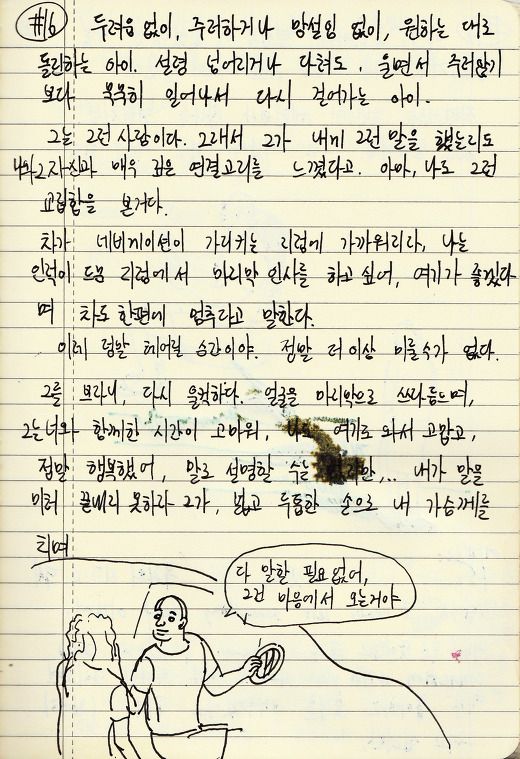 #16
두려움 없이, 주저하거나 망설임 없이, 원하는 대로
돌진하는 아이. 설령 넘어지거나 다쳐도, 울면서 주저앉기
보다 묵묵히 일어나서 다시 걸어가는 아이.
그는 그런 사람이다. 그래서 그가 내게 그런 말을 했는지도
나와 그 자신과 매우 깊은 연결고리를 느꼈다고. 아마, 나도 그런
고립함을 본거다.
차가 네비게이션이 가리키는 지점에 가까워지자, 나는
인적이 드문 지점에서 마지막 인사를 하고 싶어, 여기가 좋겠다
며 차도 한편에 멈추라고 말한다.
이제 정말 헤어질 순간이야. 정말 더 이상 미룰 수가 없다.
그를 보자니, 다시 울컥하다. 얼굴을 마지막으로 쓰다듬으며,
그는 너와 함께한 시간이 고마워, 나도 여기로 와서 고맙고,
정말 행복했어, 말로 설명할 수는 ... 내가 말을
미처 끝내지 못하자 그가, 넓고 두툼한 손으로 내 가슴께를
치며
다 말할 필요 없어,
그런 마음에서 오는거야